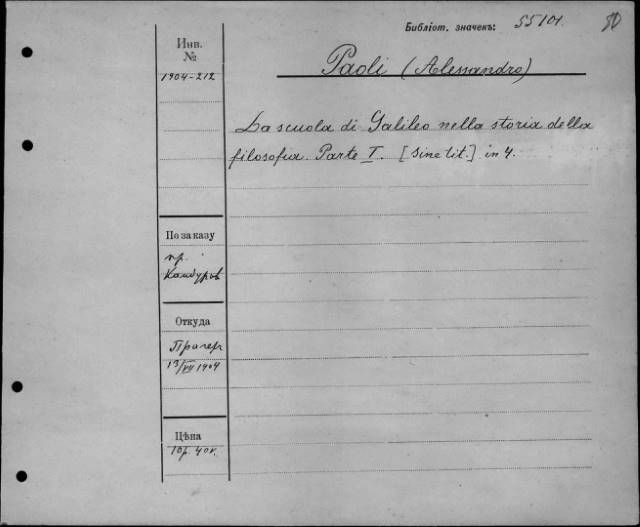 Библіот. значекъ: 55101.
Инв. №
1904-212
Paoli (Alessandro)
La scuola di Galileo nella storia della
filosofia. Parte I. [sine tit.] in 4.
По заказу
пр.
Откуда
Прагер
13/VII 1904
Цѣна
10р. 40к.